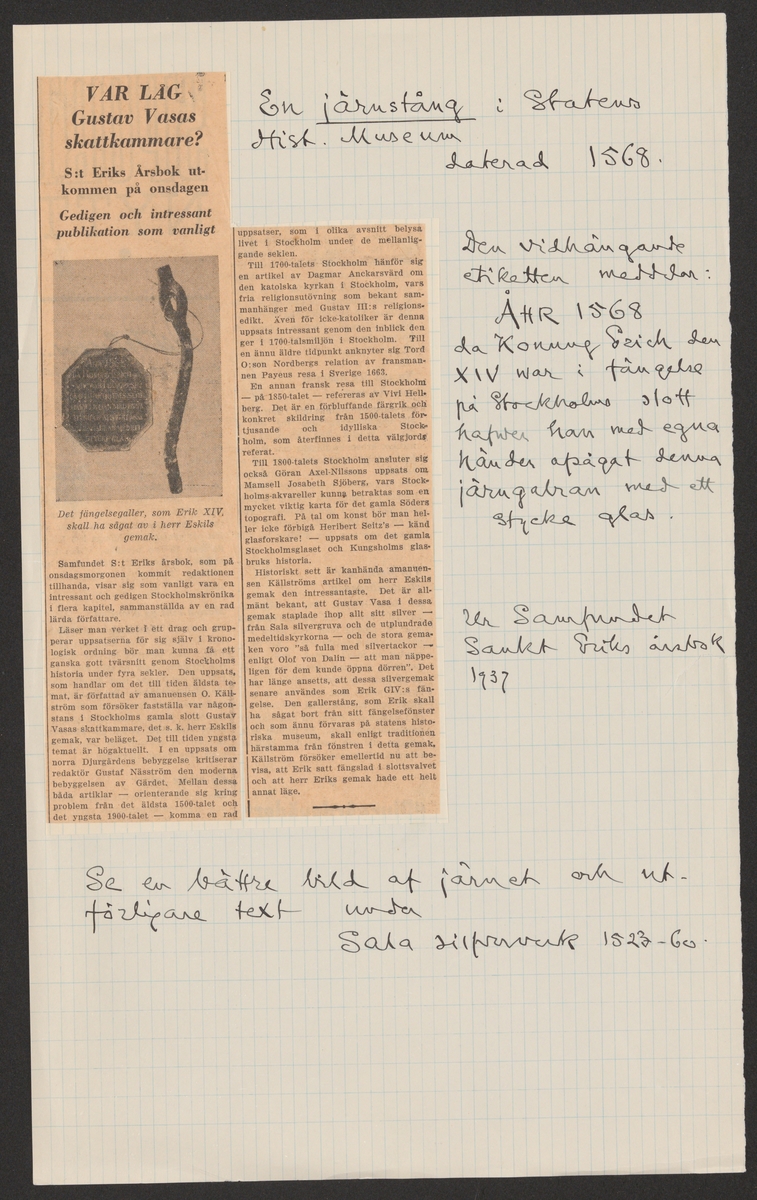 VAR LÅG
Gustav Vasas
skattkammare?
S:t Eriks Årsbok ut-
kommen på onsdagen
Gedigen och intressant
publikation som vanligt
Det fängelsegaller, som Erik XIV
skall ha sågat av i herr Eskils
gemak.
Samfundet S:t Eriks årsbok, som på
onsdagsmorgonen kommit redaktionen
tillhanda, visar sig som vanligt vara en
intressant och gedigen Stockholmskrönika
i flera kapitel, sammanställda av en rad
lärda författare.
Läser man verket i ett drag och grup-
perar uppsatserna för sig själv i krono-
logisk ordning bör man kunna få ett
ganska gott tvärsnitt genom Stockholms
historia under fyra sekler. Den uppsats,
som handlar om det till tiden äldsta te-
mat, är författad av amanuensen O. Käll-
ström som försöker fastställa var någon-
stans i Stockholms gamla slott Gustav
Vasas skattkammare, det s. k. herr Eskils
gemak, var beläget. Det till tiden yngsta
temat är högaktuellt. I en uppsats om
norra Djurgårdens bebyggelse kritiserar
redaktör Gustaf Näsström den moderna
bebyggelsen av Gärdet. Mellan dessa
båda artiklar — orienterande sig kring
problem från det äldsta 1500-talet och
det yngsta 1900-talet — komma en rad
uppsatser, som i olika avsnitt belysa
livet i Stockholm under de mellanlig-
gande seklen.
Till 1700-talets Stockholm hänför sig
en artikel av Dagmar Anckarsvärd om
den katolska kyrkan i Stockholm, vars
fria religionsutövning som bekant sam-
manhänger med Gustav III:s religions-
edikt. Även för icke-katoliker är denna
uppsats intressant genom den inblick den
ger i 1700-talsmiljön i Stockholm. Till
en ännu äldre tidpunkt anknyter sig Tord
O:son Nordbergs relation av fransman-
nen Payeus resa i Sverige 1663.
En annan fransk resa till Stockholm
— på 1850-talet — refereras av Vivi Hell-
berg. Det är en förbluffande färgrik och
konkret skildring från 1500-talets för-
tjusande och idylliska Stock-
holm, som återfinnes i detta välgjorda
referat.
Till 1800-talets Stockholm ansluter sig
också Göran Axel-Nilssons uppsats om
Mamsell Josabeth Sjöberg, vars Stock-
holms-akvareller kunna betraktas som en
mycket viktig karta för det gamla Söders
topografi. På tal om konst bör man hel-
ler icke förbigå Heribert Seitz's — känd
glasforskare! — uppsats om det gamla
Stockholmsglaset och Kungsholms glas-
bruks historia.
Historiskt sett är kanhända amanuen-
sen Källströms artikel om herr Eskils
gemak den intressantaste. Det är all-
mänt bekant, att Gustav Vasa i dessa
gemak staplade ihop allt sitt silver —
från Sala silvergruva och de utplundrade
medeltidskyrkorna — och de stora gema-
ken voro "så fulla med silvertackor —
enligt Olof von Dalin — att man näppe-
ligen för dem kunde öppna dörren". Det
har länge ansetts, att dessa silvergemak
senare användes som Erik GIV:s fän-
gelse. Den gallerstång, som Erik skall
ha sågat bort från sitt fängelsefönster
och som ännu förvaras på statens histo-
riska museum, skall enligt traditionen
härstamma från fönstren i detta gemak.
Källström försöker emellertid nu att be-
visa, att Erik satt fängslad i slottsvalvet
och att herr Eriks gemak hade ett helt
annat läge.
En järnstång i Statens
Hist. Museum
daterad 1568.
Den vidhängande
etiketten meddelar:
ÅHR 1568
da Konung Erich den
XIV war i fängelse
på Stockholms slott
hafwer han med egna
händer afsågat denna
järngalran med ett
stycke glas.
Ur Samfundet
Sankt Eriks årsbok
1937
Se en bättre bild af järnet och ut-
förligare text under
Sala silfververk 1523-60.